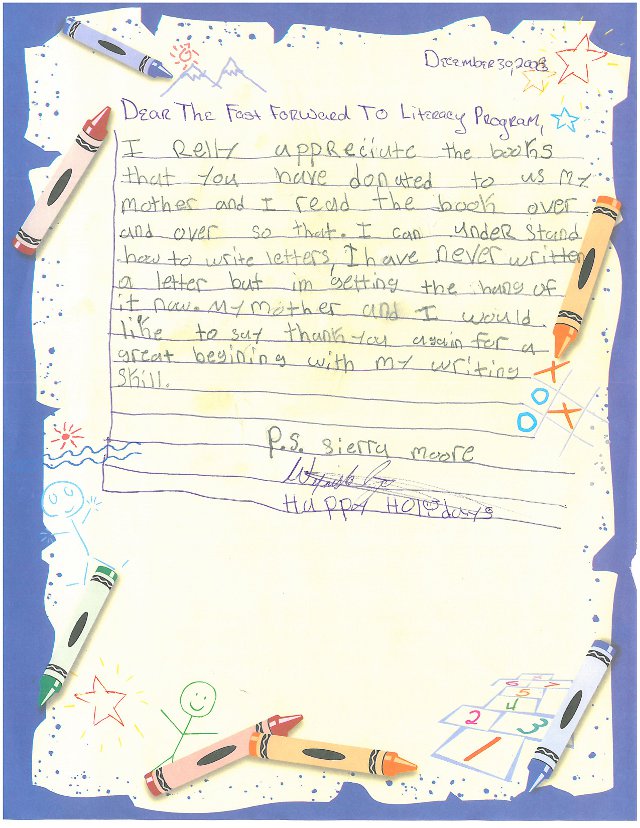 December 30, 2008
Dear The Fast Forward To Literacy Program,
I Relly appreciate the books
that you have donated to us my
mother and I read the book over
and over so that. I can under stand
how to write letters, I have never written
a letter but im getting the hang of
it now. My mother and I would
like to say thank you again for a
great begining with my writing
skill.
P.S. Sierra moore
Happy Holidays
6 7
5
4
2 3
1